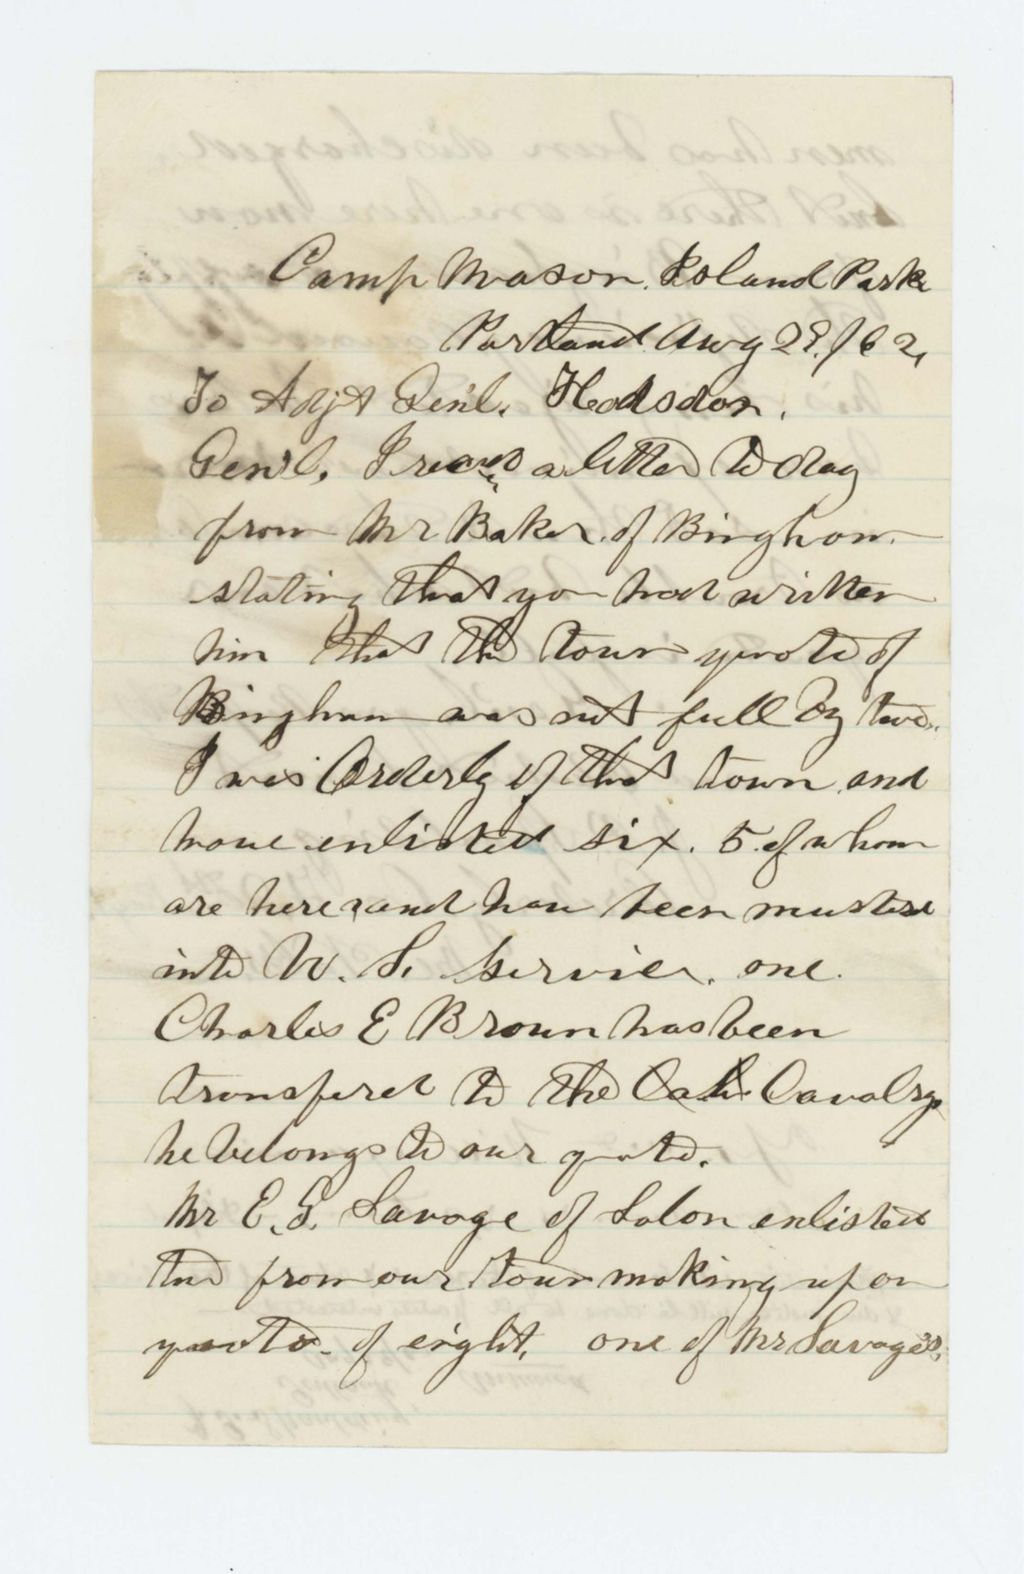 Camp Mason. Island Park
Portland Aug 29. /62,
To Adjt Gen'l. Hodsdon.
Gen'l, I recved a letter to day
from Mr Baker. of Bingham.
stating that you had written
him that the town quota of
Bingham was not full by two.
I was Orderly of that town and
have enlisted six. 5. of whom
are here and have been musterd
into U. S. Service. one.
Charles E Brown has been
transfered to the Cavalry
he belongs to our quota.
Mr E. G. Savage of Solon enlisted
two from our town making up our
quota. of eight. one of Mr Savages.